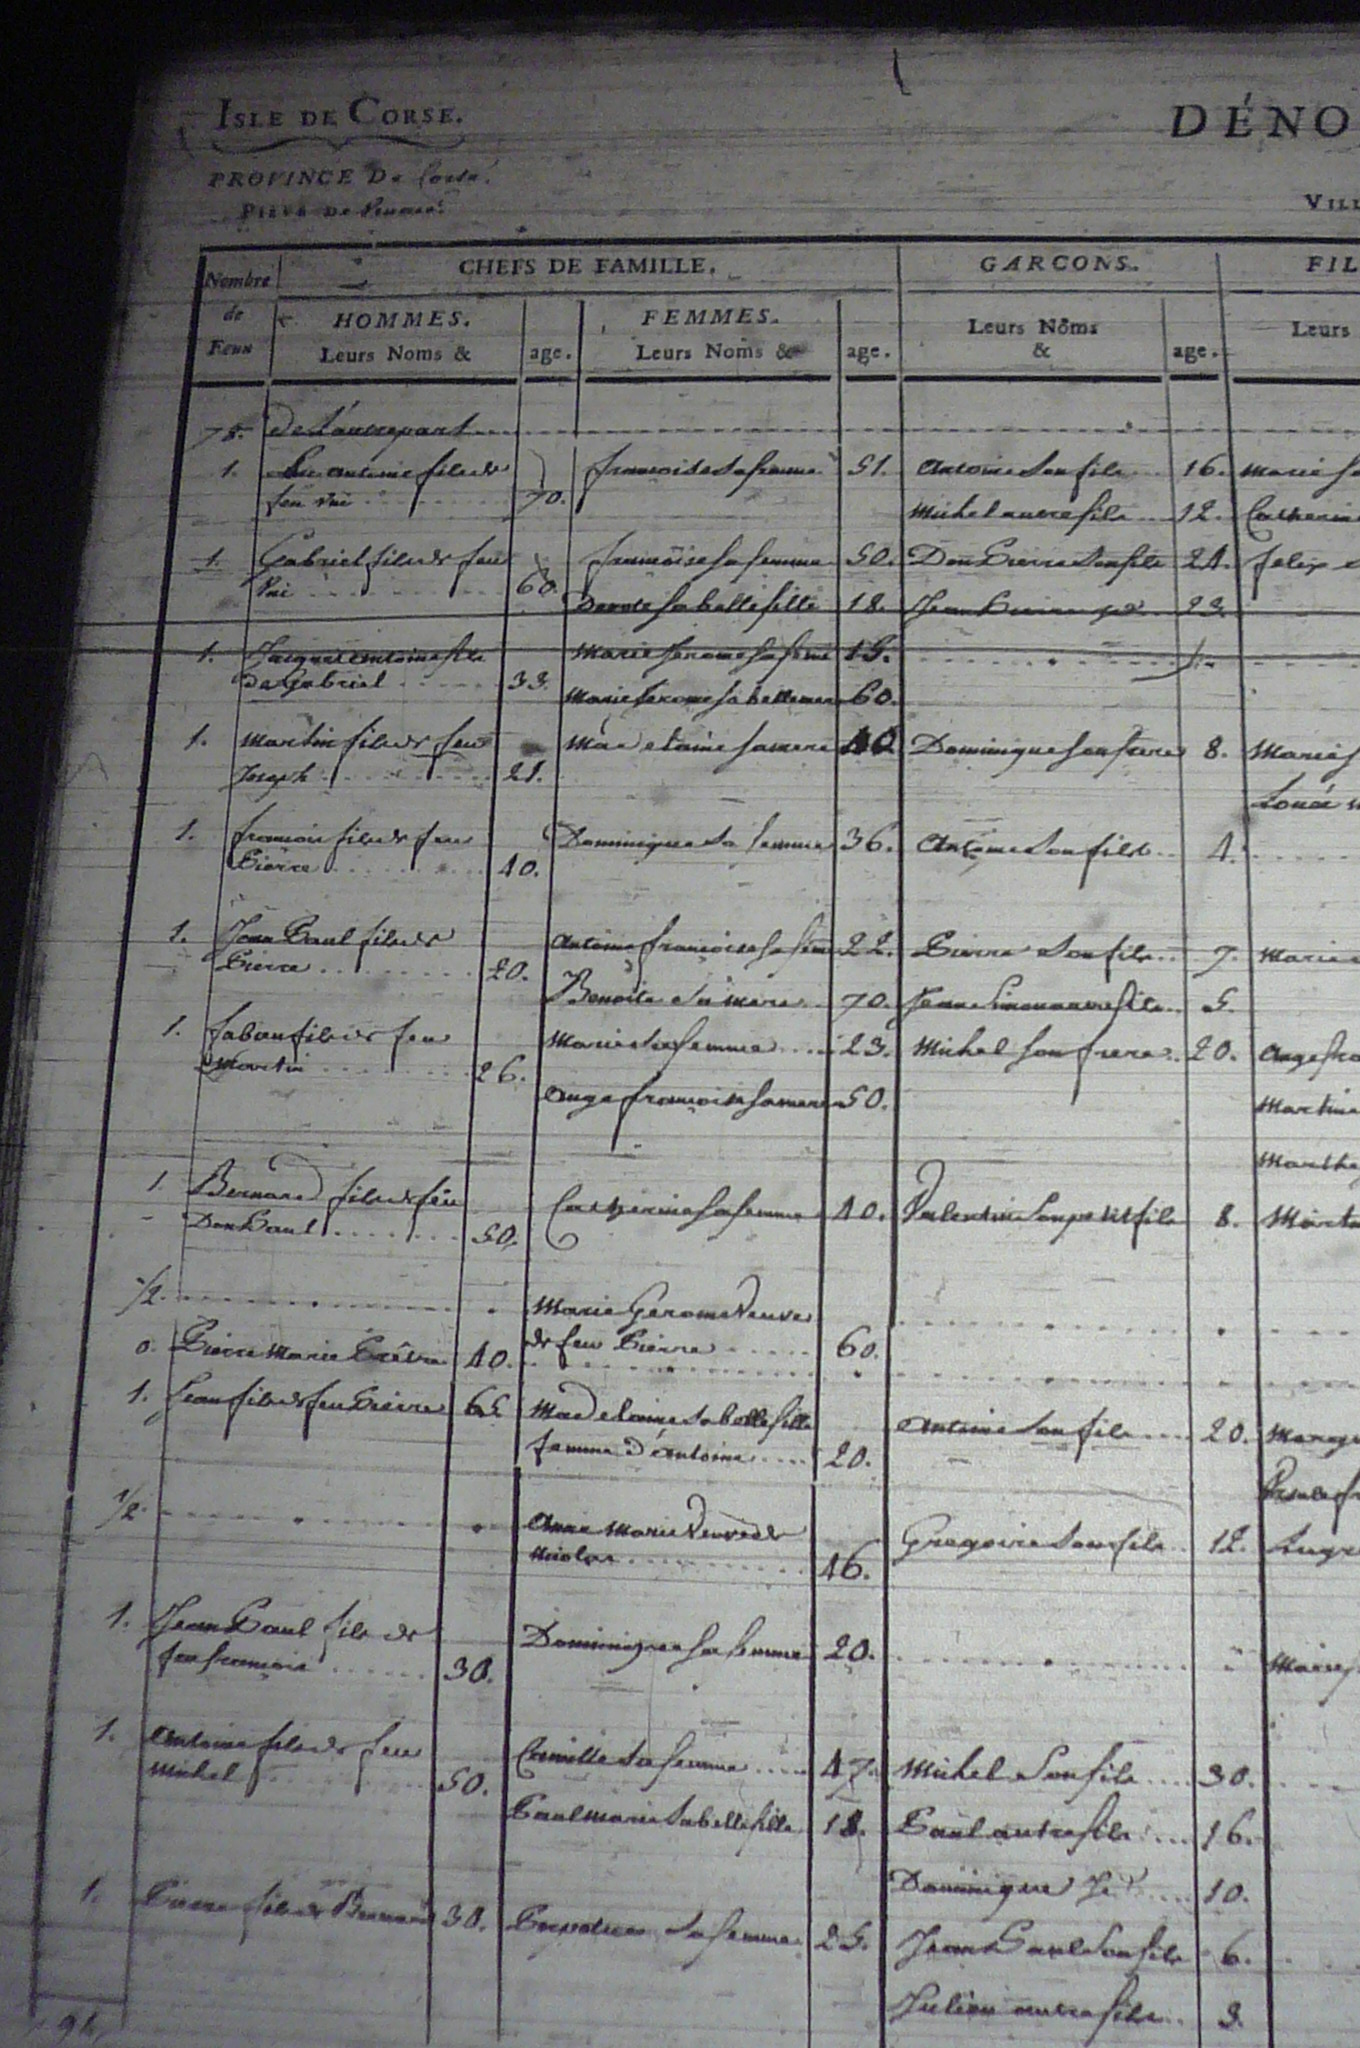 ISLE DE CORSE.
DÉNO
PROVINCE De Corte.
PIEVE DE
VILL
Nombre de Feux
CHEFS DE FAMILLE.
GARCONS.
FIL
HOMMES.
Leurs Noms &
age.
FEMMES.
Leurs Noms &
age.
Leurs Noms
&
age.
Leurs
78. de l'autre part
1. Luc Antoine fils de 70. francoise sa femme 51. Antoine son fils 16. Marie sa
feu
Michel autre fils 12. Catherine
1. Gabriel fils de feu 60. francoise sa femme 50. Don Pierre son fils 24. felix
Devote sa belle fille 18. Jean Pierre 23.
1. Jacques Antoine fils Marie Jerome sa feme 15.
de Gabriel 33. Marie Jerome sa belle mere 60.
1. Martin fils de feu Madelaine sa mere 40 Dominique son frere 8. Marie s
Joseph 21.
1. francois fils de feu Dominique sa femme 36. Antoine son fils 4.
Pierre 40.
1. Jean Paul fils de Antoine francoise sa feme 22. Pierre son fils 7. Marie
Pierre 20. Benoite sa mere 70. Jean Simon autre fils 5.
1. fabien fils de feu Marie sa femme 23. Michel son frere 20. Ange fra
Martin 26. Ange francoise sa mere 50.
Martine
Marthe
1. Bernard fils de feu Catherine sa femme 40. Valentin son petit fils 8.
Don Paul 50.
1/2. Marie Gerome Veuve
de feu Pierre 60.
0. Pierre Marie Prêtre 40.
1. Jean fils de feu Pierre 65 Madelaine sa belle fille Antoine son fils 20.
femme d'Antoine 20.
1/2. Anne Marie Veuve de Gregoire son fils 12.
Nicolas 46.
1. Jean Paul fils de Dominique sa femme 20.
feu francois 30.
1. Antoine fils de feu Camille sa femme 47. Michel son fils 30.
Michel 50. Paul Marie sa belle fille 18. Paul autre fils 16.
Dominique Id. 10.
1. Pierre fils de Bernard 30. sa femme 25. Jean Paul son fils 6.
Julien autre fils 3.